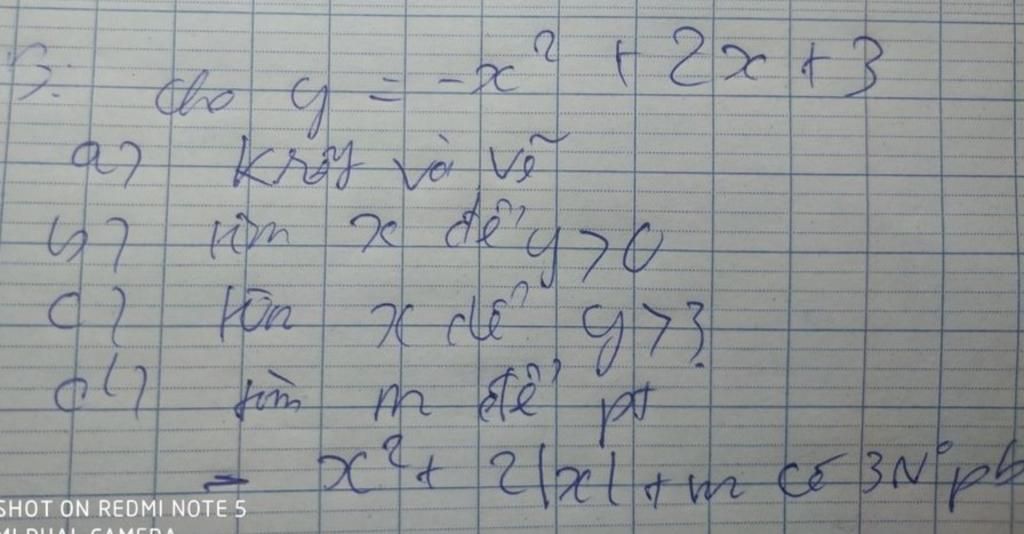 B: Cho y = -x² + 2x + 3
a) và vẽ
b) tìm x để y > 0
c) tìm x để y > 3
d) tìm m để pt
- x² + 2|x| + m có 3 N° pb
SHOT ON REDMI NOTE 5
MI DUAL CAMERA